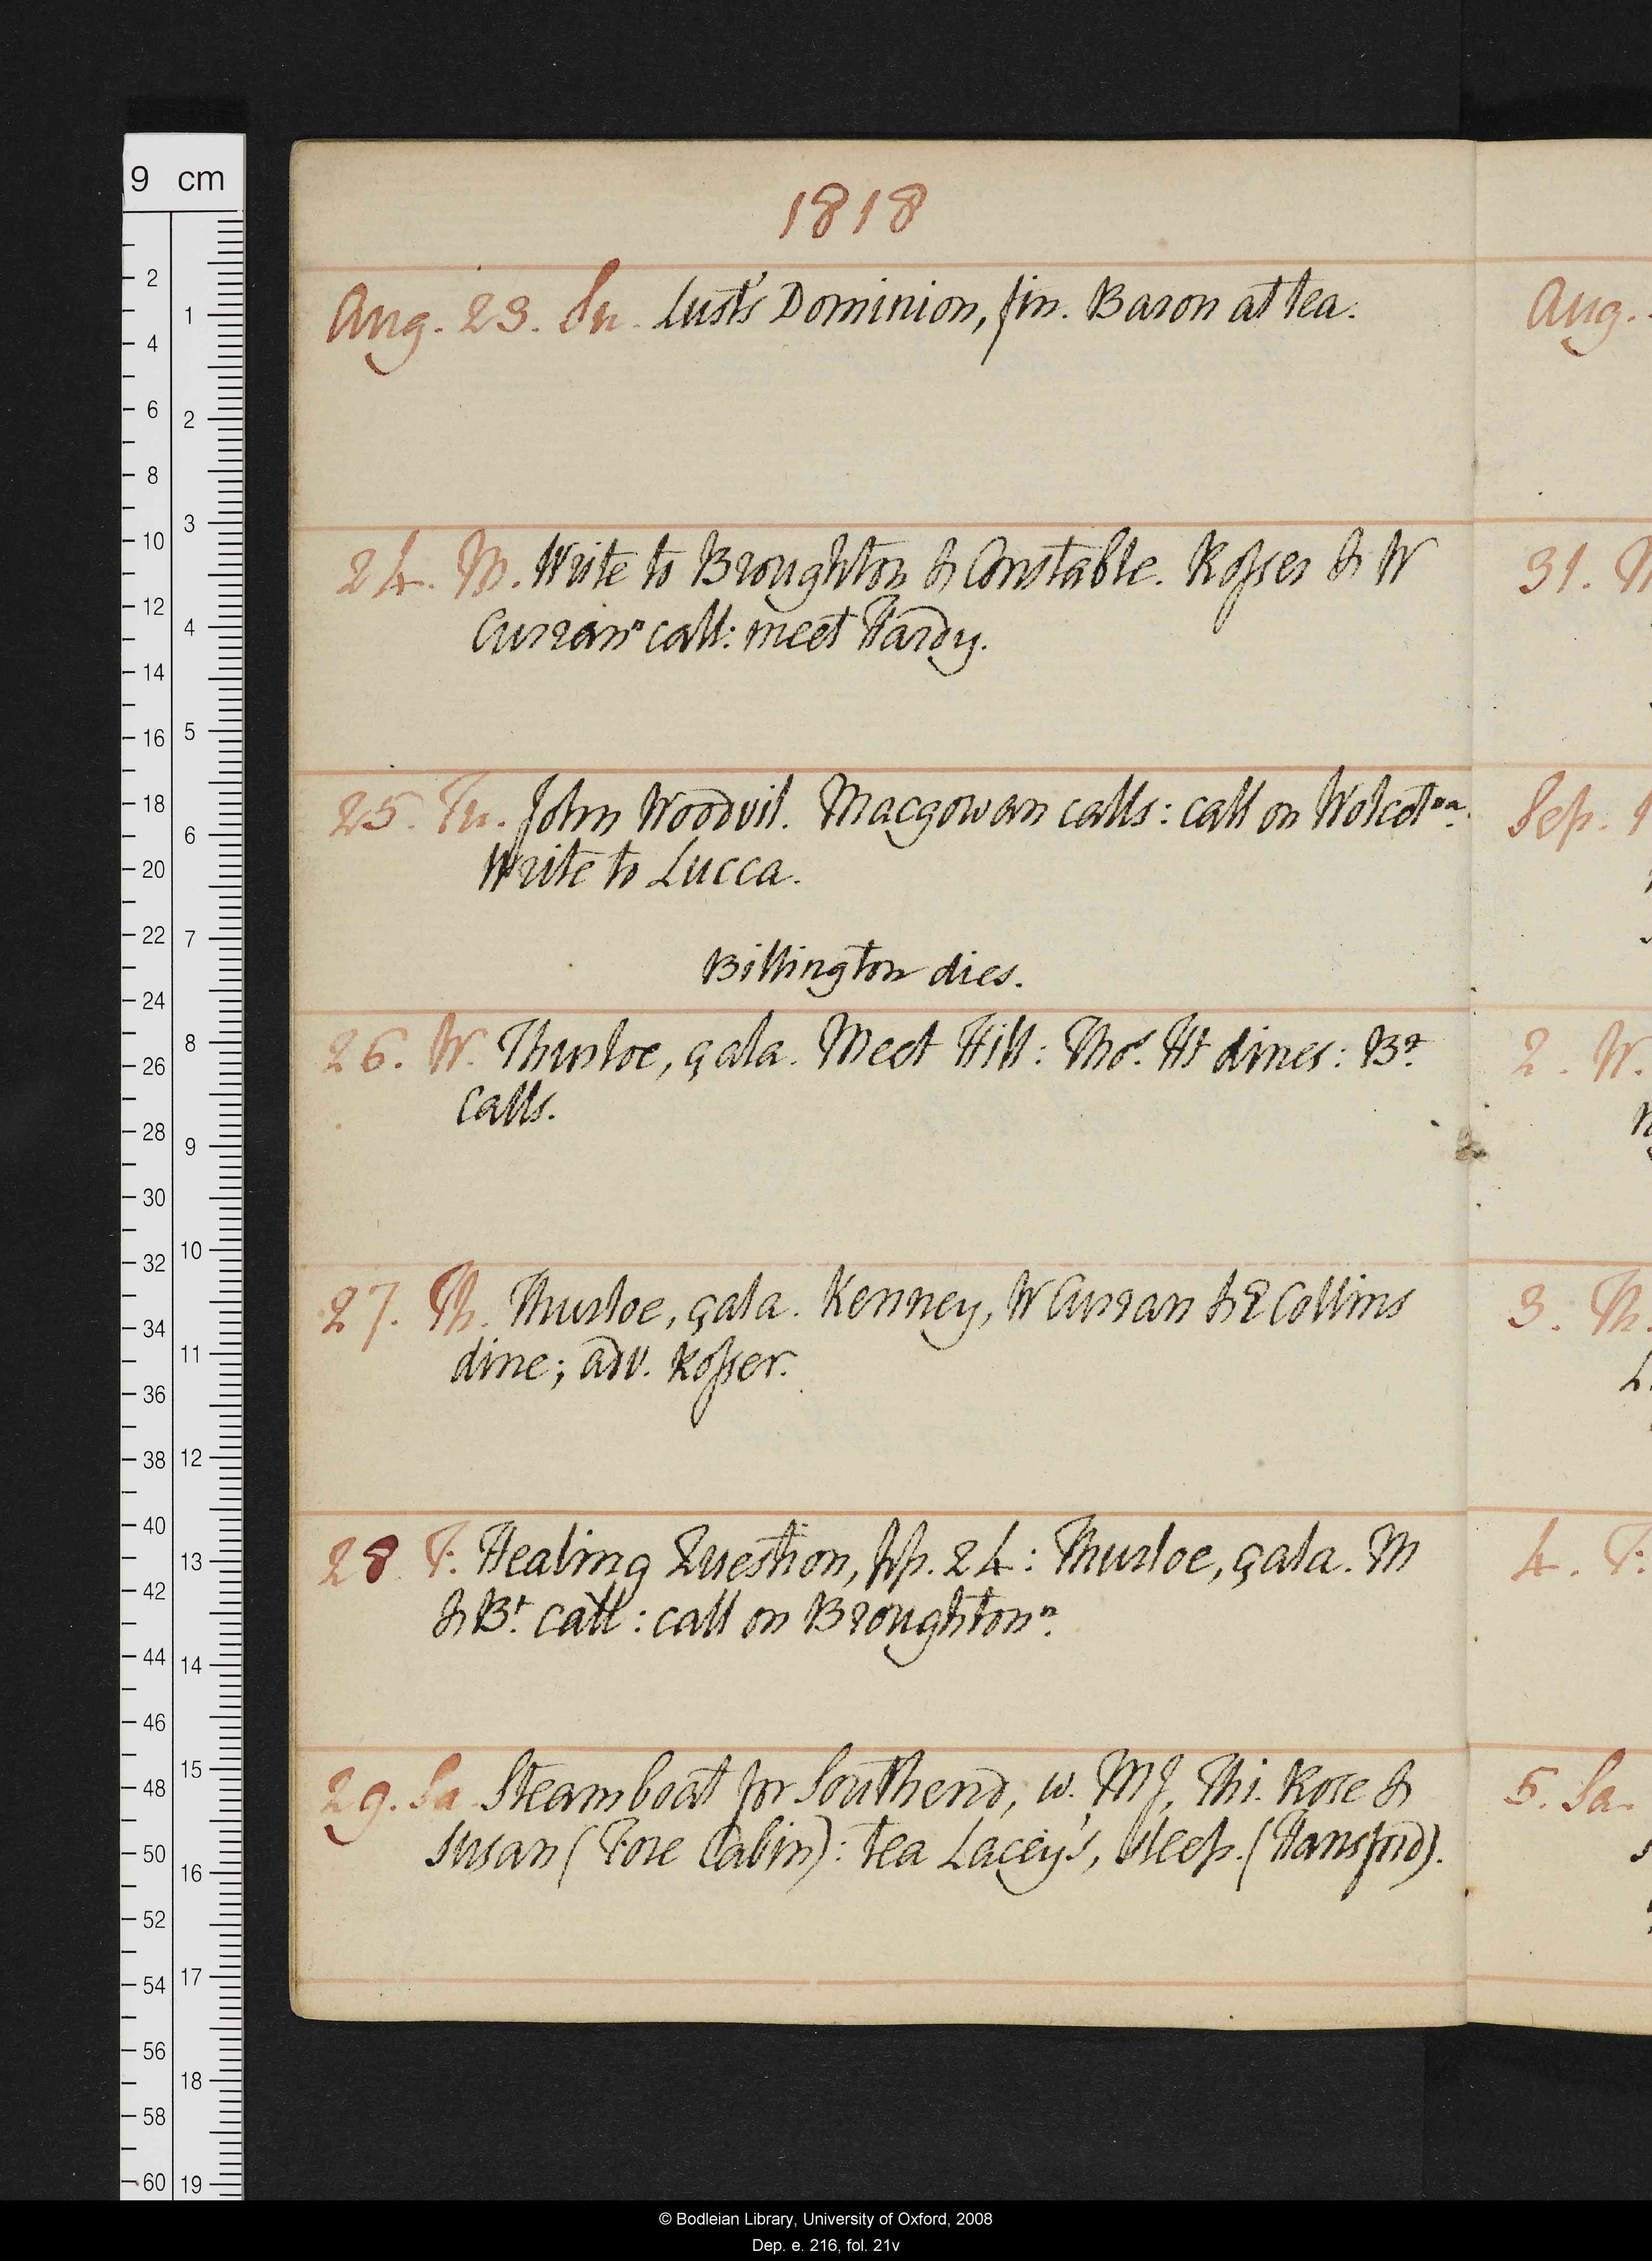 1818
Aug. 23. Su. Lust's Dominion, fin. Baron at tea.
24. M. Write to Broughton & Constable. Rosser & W
Curran n call: meet Hardy.
25. Tu. John Woodvil. Macgowan calls: call on Wolcot na.
Write to Lucca.
Billington dies.
26. W. Thurloe, çala. Meet Hill: Thos. Ht dines: Bt
calls.
27. Th. Thurloe, çala. Kenney, W Curran & E Collins
dine; adv. Rosser.
28. F. Healing Question, pp. 24: Thurloe, çala. M
& Bt. call: call on Broughton n.
29. Sa. Steam boat for Southend, w. MJ, Thi. Rose &
Susan (Fore Cabin): tea Lacey's, sleep. (Hansford).
Aug.
31. M
Sep. 1
2. W.
3. Th.
L.
4. F.
5. Sa.
9 cm
2
4
6
8
10
12
14
16
18
20
22
24
26
28
30
32
34
36
38
40
42
44
46
48
50
52
54
56
58
60
1
2
3
4
5
6
7
8
9
10
11
12
13
14
15
16
17
18
19
© Bodleian Library, University of Oxford, 2008
Dep. e. 216, fol. 21v